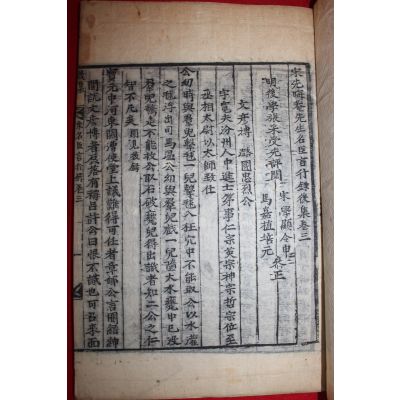 宋朱晦菴先生名臣言行錄後集卷三
明後學張采受先評閱
宋學顯令申
馬嘉植培元 參正
文彥博 潞國忠烈公
字寬夫汾州人中進士第事仁宗英宗神宗哲宗位至
丞相太尉以太師致仕
公幼時與羣兒擊毬入柱穴中不能取公以水灌
之毬浮出司馬溫公幼與羣兒戲一兒墮大水甕中已沒
羣兒驚走不能救公取石破甕兒得出識者知二公之仁
智不凡矣 聞見錄
中河東闕漕使堂上議難得可任者章
聞說文彥博者及第有稱呂許公曰恨不識也可召來面
宋名臣言行錄 卷三